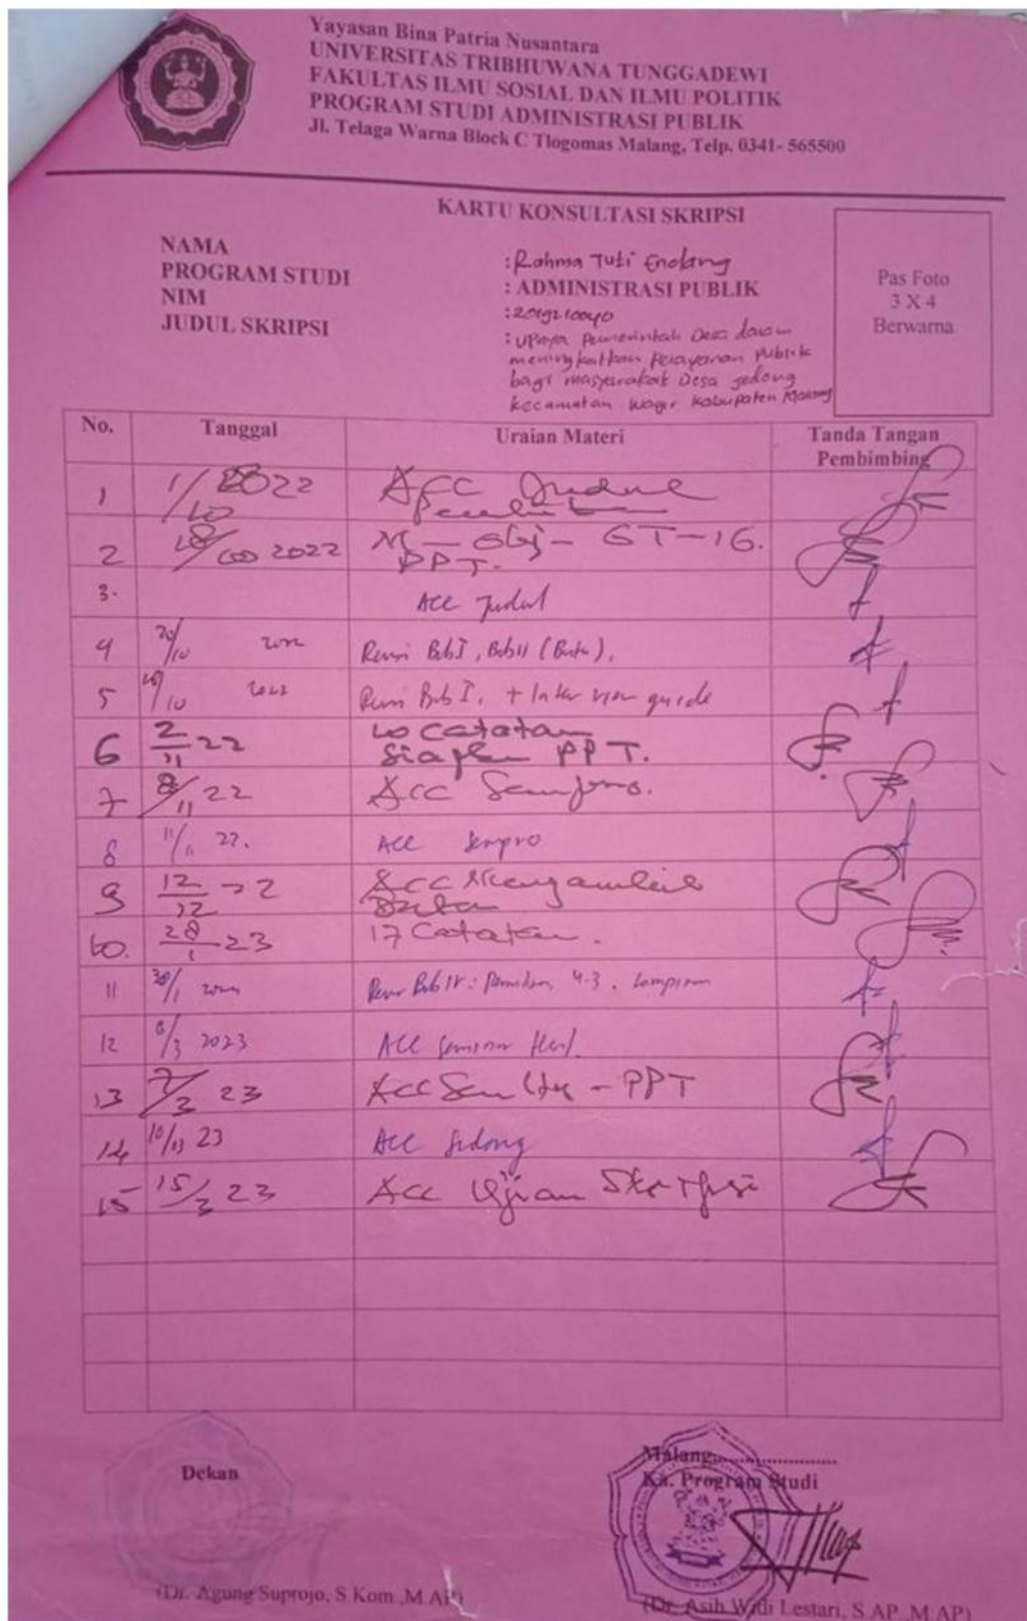 Yayasan Bina Patria Nusantara
UNIVERSITAS TRIBHUWANA TUNGGADEWI
FAKULTAS ILMU SOSIAL DAN ILMU POLITIK
PROGRAM STUDI ADMINISTRASI PUBLIK
Jl. Telaga Warna Block C Tlogomas Malang, Telp. 0341- 565500
KARTU KONSULTASI SKRIPSI
NAMA : Rahma Tuti Endang
PROGRAM STUDI : ADMINISTRASI PUBLIK
NIM : 2019210040
JUDUL SKRIPSI : Upaya Pemerintah Desa dalam
meningkatkan Pelayanan Publik
bagi masyarakat Desa Jedong
Kecamatan Wagir Kabupaten Malang
Pas Foto
3 X 4
Berwarna
No. Tanggal Uraian Materi Tanda Tangan
Pembimbing
1 1/10 2022 Acc Judul
2 2022
PPT.
3. ACC Judul
4 20/10 Revisi Bab I, Bab II
5 /10 2022 Revisi Bab I. + Interview guide
6 2/11 22 Catatan
Siapkan PPT.
7 8/11 22 Acc Sempro.
8 11/11 22. ACC Sempro
9 12/12 22 Acc Mengambil
10. 28/1 23 17 Catatan.
11 30/1 Bab IV: 4.3. Lampiran
12 6/3 2023 ACC Seminar Hasil.
13 7/3 23 Acc - PPT
14 23 ACC Sidang
15 15/3 23 Acc Ujian Skripsi
Dekan
(Dr. Agung Suprojo, S.Kom.,M.AP)
Malang,....................
Ka. Program Studi
(Dr. Asih Widi Lestari, S.AP, M.AP)